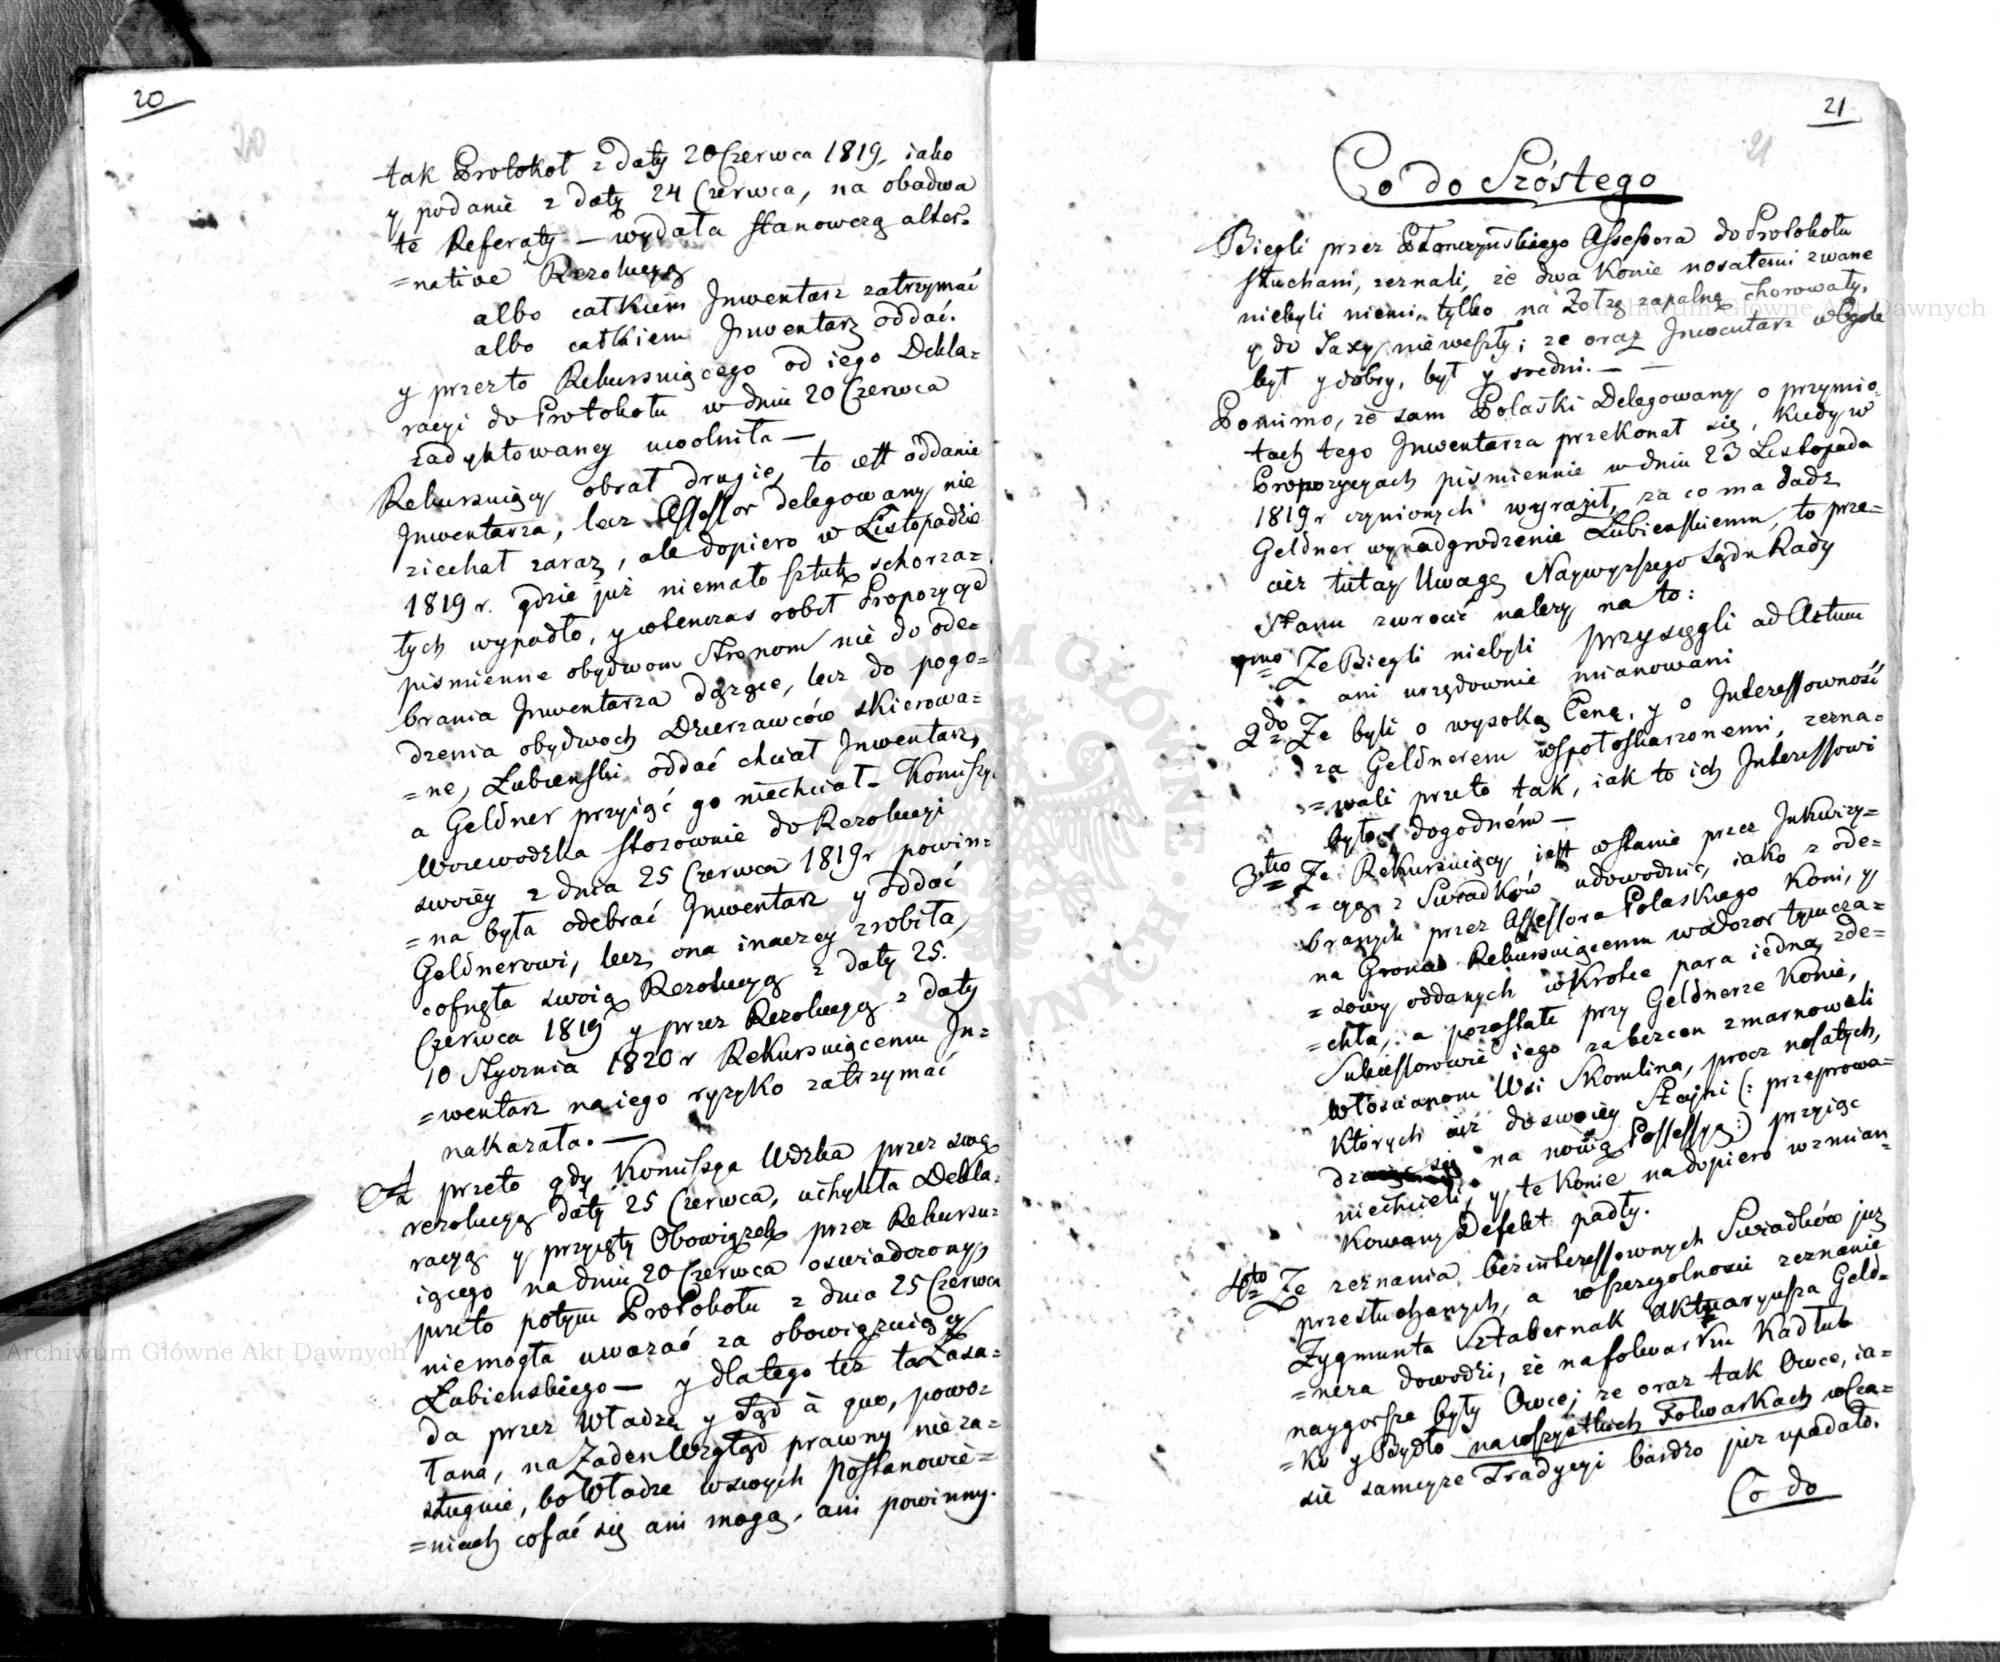 20
20
tak Protokoł z daty 20 Czerwca 1819, iako
y podanie z daty 24 Czerwca, na obadwa
te Referaty — wydała stanowczą alter-
=native Rezolucyą
albo całkiem Jnwentarz zatrzymać
albo całkiem Jnwentarz oddać.
y przezto Rekursuiącego od iego Dekla-
racyi do Protokołu w dniu 20 Czerwca
zadyktowaney uwolniła —
Rekursuiący obrał drugie, to iest oddanie
Jnwentarza, lecz Assessor delegowany nie
ziechał zaraz, ale dopiero w Listopadzie
1819 r. gdzie już niemało sztuk schorza-
łych wypadło, y wtenczas robił Propozycye
piśmienne obydwom Stronom nie do ode-
brania Jnwentarza dążące, lecz do pogo-
dzenia obydwoch Dzierzawców skierowa-
=ne, Łubienski oddać chciał Jnwentarz,
a Geldner przyiąć go niechciał – Komissya
Woiewodzka stosownie do Rezolucyi
swoiey z dnia 25 Czerwca 1819 r powin-
=na była odebrać Jnwentarz y oddać
Geldnerowi, lecz ona inaczey zrobiła,
cofnęła swoią Rezolucyą z daty 25.
Czerwca 1819 y przez Rezolucyą z daty
10 Stycznia 1820 r Rekursuiącemu Jn-
=wentarz na iego ryzyko zatrzymać
nakazała. —
A przeto gdy Komissya Wdzka przez swą
rezolucyą daty 25 Czerwca, uchyliła Dekla-
racyą y przyięty Obowiązek przez Rekursu-
iącego na dniu 20 Czerwca oswiadczony,
przeto potym Protokołu z dnia 25 Czerwca
niemogła uwazać za obowiązuiący
Łubienskiego — y dlatego też ta Zasa-
da przez Władzę y Sąd à quo, powo-
łana, na Zaden Wzgląd prawny nieza-
sługuie, bo Władze w swoych Postanowie-
=niach cofać się ani mogą, ani powinny.
21
21
Co do Szóstego
Biegli przez Assessora do Protokołu
słuchani, zeznali, że dwa Konie nosatemi zwane
niebyli niemi, tylko na Zołzę zapalną chorowały,
y do Taxy nieweszły; ze oraz Jnwentarz w Bydle
był y dobry, był y sredni. —
Pomimo, że sam Polaski Delegowany o przymio-
tach tego Jnwentarza przekonał się, Kiedy w
Propozycyach piśmiennie w dniu 23 Listopada
1819 r czynionych wyraził, za co ma dadz
Geldner wynadgrodzenie Łubienskiemu, to prze-
cież tutay Uwagę Naywyższego Sądu Rady
Stanu zwrocić nalezy na to:
1mo Ze Biegli niebyli przysięgli ad Actum
ani urzędownie mianowani
2do Ze byli o wysoką Cenę, y o Jnteressowność
za Geldnerem wspołoskarzonemi, zezna-
=wali przeto tak, iak to ich Jnteressowi
było dogodném —
3tio Ze Rekursuiący iest wstanie przez Jnkwizy-
=cyą z Swiadków udowodnić, iako z ode-
branych przez Assessora Polaskiego Koni, y
na Rekursuiącemu w dozor tymcza-
=sowy oddanych wkrotce para iedna zde-
=chła, a pozostałe przy Geldnerze Konie,
Sukcessorowie iego za bezcen zmarnowali
Włoscianom Wsi Skomlina, procz nosatych,
Których iuż do swoiey Stayni (: przeprowa-
dz na nową Possessyą :) przyiąc
niechcieli, y te Konie na dopiero wzmian-
Kowany Defekt padły.
4to Ze zeznania bezinteressownych Swiadków już
przesłuchanych, a wszczegolnosci zeznanie
Zygmunta Sztabernak Aktuaryusza Geld-
=nera dowodzi, że na folwarku Kadłub
naygorsze były Owce; ze oraz tak Owce, ia-
=Ko y Bydło na wszystkich Folwarkach wcza-
sie sameyże Tradycyi bardzo już upadało.
Co do
Archiwum Główne Akt Dawnych
Archiwum Główne Akt Dawnych
ARCHIWUM GŁÓWNE AKT DAWNYCH